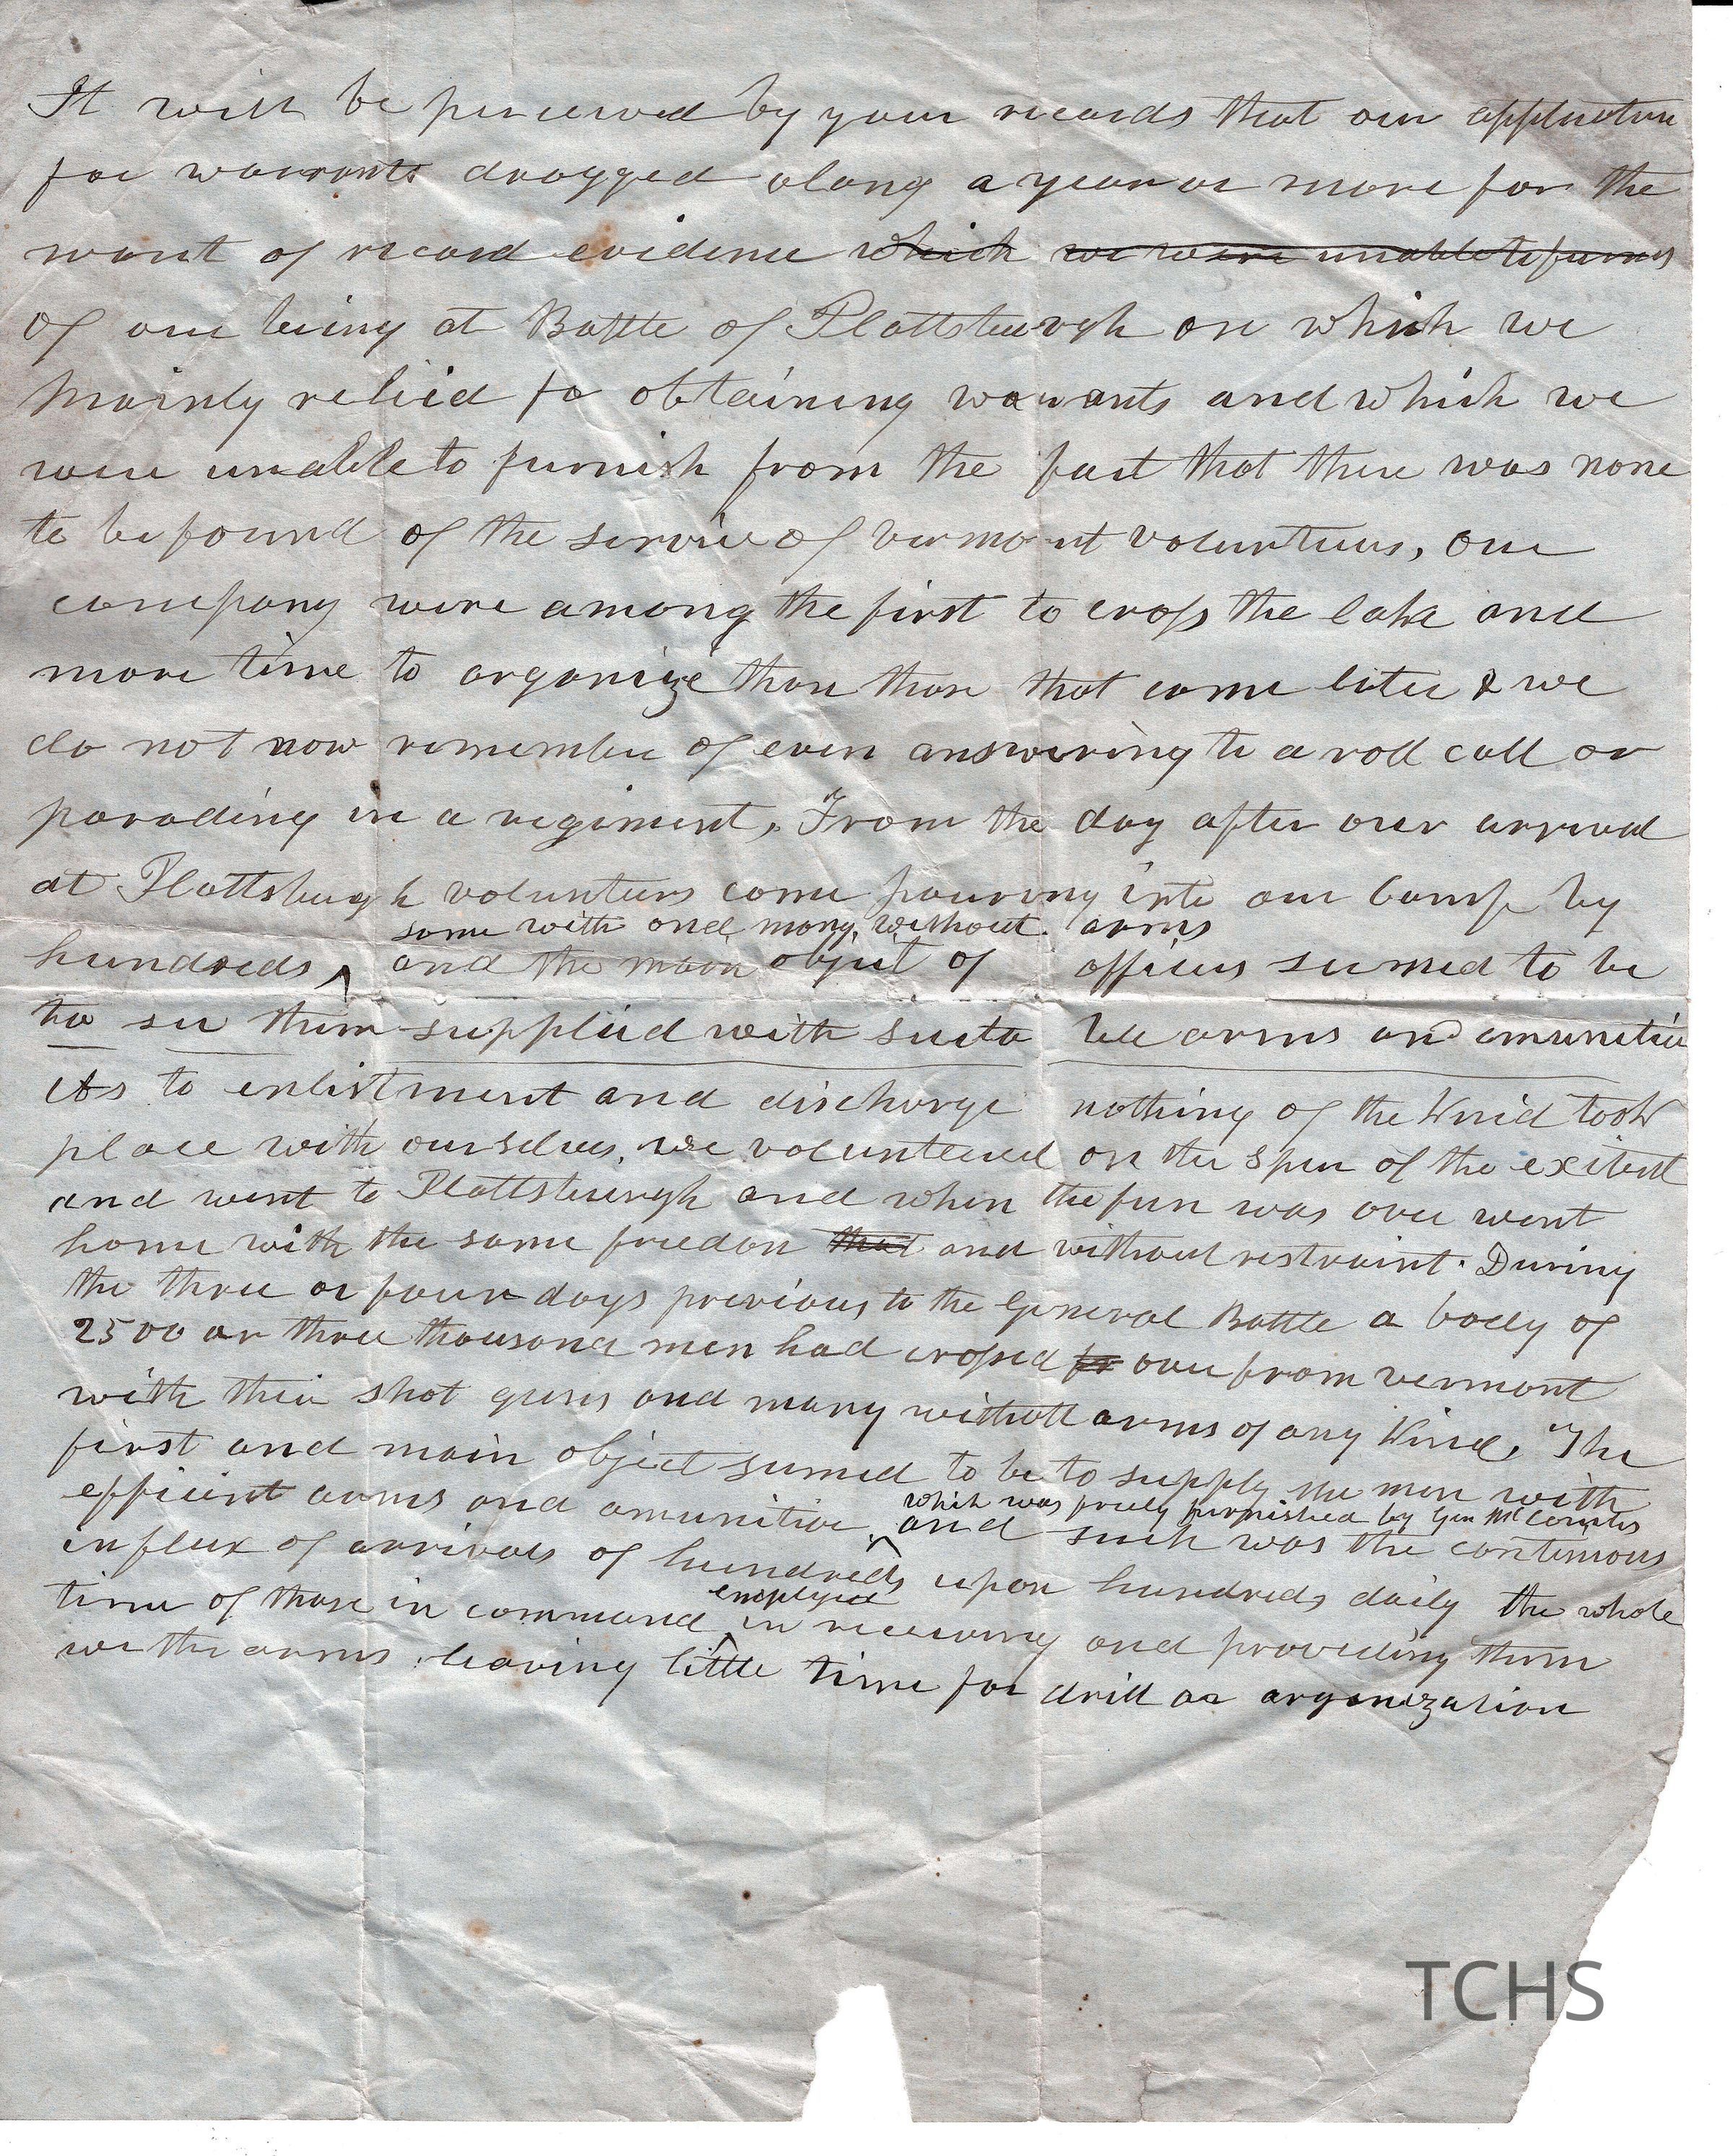 It will be perceived by your records that our application
for warrants dragged along a year or more for the
want of record evidence which we were unable to furnis
of our being at Battle of Plattsburgh on which we
mainly relied fo obtaining warrants and which we
were unable to furnish from the fact that there was none
to be found of the service of vermont volunteers, our
company were among the first to cross the lake and
more time to organize than those that came later & we
do not now remember of even answering to a roll call or
parading in a regiment, From the day after our arrival
at Plattsburgh volunteers come pouring into our Camp by
some with and many without arms
hundreds, and the main object of officers seemed to be
to see them supplied with suitable arms and amunition
As to enlistment and discharge nothing of the kind took
place with ourselves, we volunteered on the spur of the exitent
and went to Plattsburgh and when the fun was over went
home with the same freedon that and without restraint. During
the three or four days previous to the General Battle a body of
2500 or three thousand men had crossed fr over from vermont
with their shot guns and many without arms of any kind, The
first and main object seemed to be to supply the men with
which was freely furnished by Gen McCombs
efficient arms and amunition, and such was the continuous
influx of arrivals of hundreds upon hundreds daily the whole
employed
time of those in command in receiving and providing them
with arms leaving little time for drill or organization
TCHS